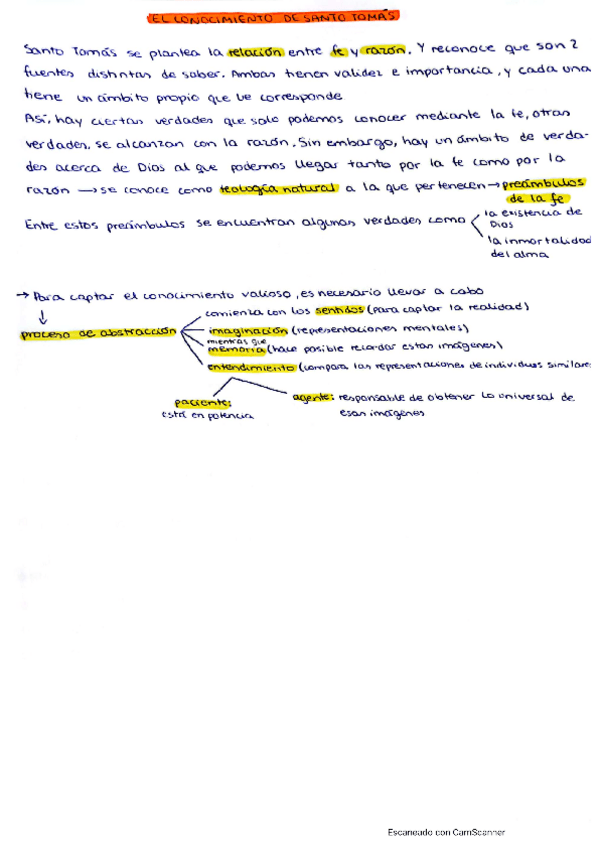 EL CONOCIMIENTO DE SANTO TOMÁS
Santo Tomás se plantea la relación entre fe y razón. Y reconoce que son 2
fuentes distintas de saber. Ambas tienen validez e importancia, y cada una
tiene un ámbito propio que le corresponde
Así, hay ciertas verdades que solo podemos conocer mediante la fe, otras
verdades, se alcanzan con la razón. Sin embargo, hay un ámbito de verda-
des acerca de Dios al que podemos llegar tanto por la fe como por la
razón → se conoce como teología natural a la que pertenecen → preámbulos
de la fe
Entre estos preámbulos se encuentran algunas verdades como
la existencia de
Dios
la inmortalidad
del alma
→ Para captar el conocimiento valioso, es necesario llevar a cabo
proceso de abstracción
comienza con los sentidos (para captar la realidad)
imaginación (representaciones mentales)
mientras que
memoria (hace posible recordar estas imágenes)
entendimiento (compara las representaciones de individuos similares
paciente:
está en potencia
agente: responsable de obtener lo universal de
esas imágenes
Escaneado con CamScanner